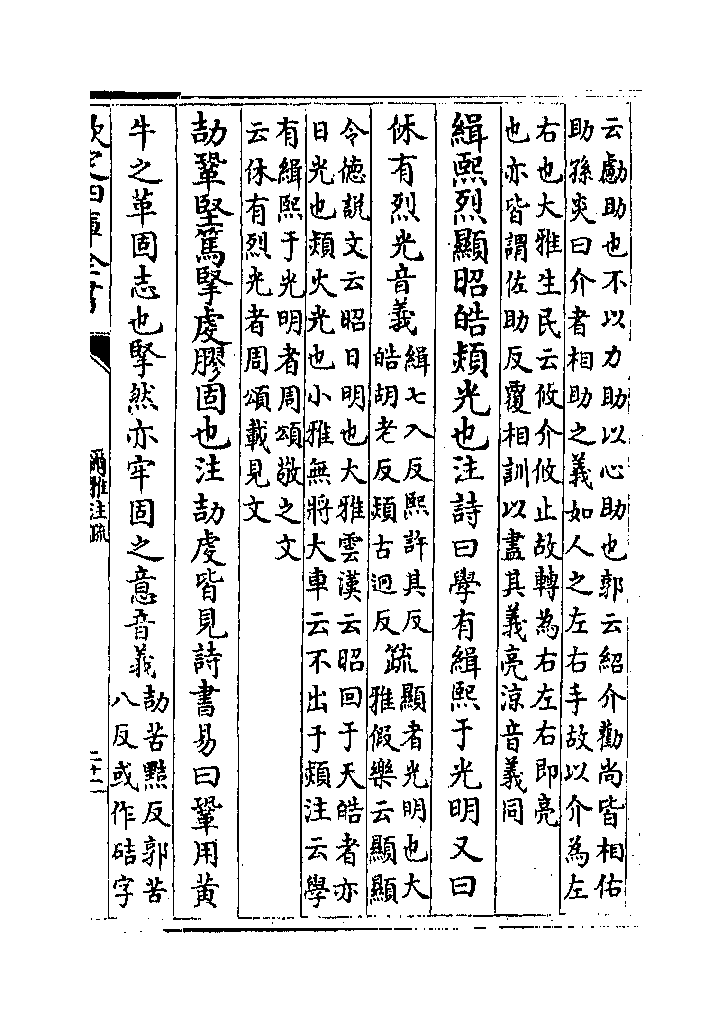 云勴助也不以力助以心助也郭云紹介勸尚皆相佑
助孫炎曰介者相助之義如人之左右手故以介為左
右也大雅生民云攸介攸止故轉為右左右即亮
也亦皆謂佐助反覆相訓以盡其義亮涼音義同
緝熙烈顯昭皓熲光也注詩曰學有緝熙于光明又曰
休有烈光音義
緝七入反熙許其反
皓胡老反熲古迥反
疏
顯者光明也大
雅假樂云顯顯
令德説文云昭日明也大雅雲漢云昭回于天皓者亦
日光也熲火光也小雅無將大車云不出于熲注云學
有緝熙于光明者周頌敬之文
云休有烈光者周頌載見文
劼鞏堅篤掔虔膠固也注劼虔皆見詩書易曰鞏用黄
牛之革固志也掔然亦牢固之意音義
劼苦黠反郭苦
八反或作硈字
欽定四庫全書
爾雅注疏
二十二